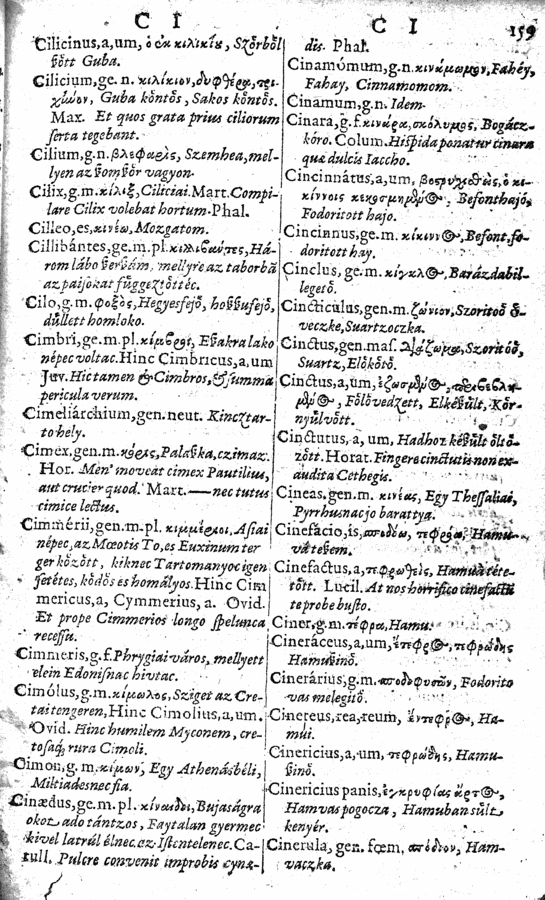 C I
C I
159
Cilicinus, a, um, ὁ ἐκ κιλικίȣ, Szőrből
ßőtt Guba.
Cilicium, ge. n. κιλίκιον, διφθέρα, τρι-
χῶον, Guba kőntős, Sakos kőntős.
Max. Et quos grata prius ciliorum
serta tegebant.
Cilium, g. n. βλεφαρὶς, Szemhea, mel-
lyen az ßőmßőr vagyon.
Cilix, g. m. κίλιξ, Ciliciai. Mart. Compi-
lare Cilix volebat hortum. Phal.
Cilleo, es, κινέω, Mozgatom.
Cillibántes, ge. m. pl. κιλλιβαύτες, Há-
rom lábo ßerßám, mellyre az taborbā
az paisokat függeztőttéc.
Cilo, g. m. φοξὸς, Hegyesfejő, hoßßufejő,
dűllett homloko.
Cimbri, ge. m. pl. κίμβροι, Eßakra lako
népec voltac. Hinc Cimbricus, a, um
Juv. Hic tamen & Cimbros, & summa
pericula verum.
Cimeliárchium, gen. neut. Kincztar-
to hely.
Cimex, gen. m. κόρις, Palaßka, czimaz.
Hor. Men' moveát cimex Pautilius,
aut crucier quod. Mart. — nec tutus
cimice lectus.
Cimmérii, gen. m. pl. κιμμέριοι, Asiai
népec, az Mœotis To, es Euxinum ter
ger kőzőtt, kiknec Tartomanyoc igen
setétes, kődős es homályos. Hinc Cim
mericus, a, Cymmerius, a. Ovid.
Et prope Cimmerios longo spelunca
recessu.
Cimmeris, g. f. Phrygiai város, mellyett
elein Edonisnac hivtac.
Cimólus, g. m. κίμωλος, Sziget az Cre-
tai tengeren, Hinc Cimolius, a, um.
Ovid. Hinc humilem Myconem, cre-
tosaq; rura Cimoli.
Cimon, g. m. κίμων, Egy Athenásbéli,
Miltiadesnec fia.
Cinædus, ge. m. pl. κίναιδοι, Bujaságra
okot ado tántzos, Faytalan gyermec
kivel latrúl élnec az Istentelenec. Ca-
tull. Pulcre convenit improbis cynæ-
dis. Phal.
Cinamómum, g. n. κινάμωμον, Fahéy,
Fahay, Cinnamomom.
Cinamum, g. n. Idem.
Cinara, g. f. κινάρα, σκόλυμος, Bogácz-
kóro. Colum. Hispida ponatur cinara
quæ dulcis Iaccho.
Cincinnátus, a, um, βοσρυχωθεὶς, ὁ κι-
κίννοις κεκοσμημένος, Befont hajó,
Fodoritott hajo.
Cincinnus, ge. m. κίκιννος, Befont, fo-
doritott hay.
Cinclus, ge. m. κίγκλος, Barázdabil-
legető.
Cincticulus, gen. m. ζώνιον, Szoritoó ő-
veczke, Suartzoczka.
Cinctus, gen. mas. διάζωμα, Szoritóó,
Suartz, Előkőtő.
Cinctus, a, um, ἐζωσμένος, περιβεβλη-
μένος, Főlővedzett, Elkéßűlt, Kőr-
nyűlvőtt.
Cinctutus, a, um, Hadhoz kéßűlt őltő-
zőtt. Horat. Fingere cinctutis non ex-
audita Cethegis.
Cineas, gen. m. κινέας, Egy Thessaliai,
Pyrrhusnac jo barattya.
Cinefacio, is, σποδόω, τεφρόω, Hamu-
vá teßem.
Cinefactus, a, τεφρωθεὶς, Hamuá téte-
tőtt. Lucil. At nos horrifico cinefactū
te probe busto.
Ciner, g. m. τέφρα, Hamu.
Cineráceus, a, um, ἔντεφρος, τεφρώδης
Hamußinő.
Cinerárius, g. m. σποδοφυσῶν, Fodorito
vas melegitő.
Cinereus, rea, reum, ἔντεφρος, Ha-
mui.
Cinericius, a, um, τεφρώδης, Hamu-
ßinő.
Cinericius panis, ἐγκρυφίας ἄρτος,
Hamvas pogocza, Hamuban sűlt
kenyér.
Cinerula, gen. fœm. σπόδιον, Ham-
vaczka.